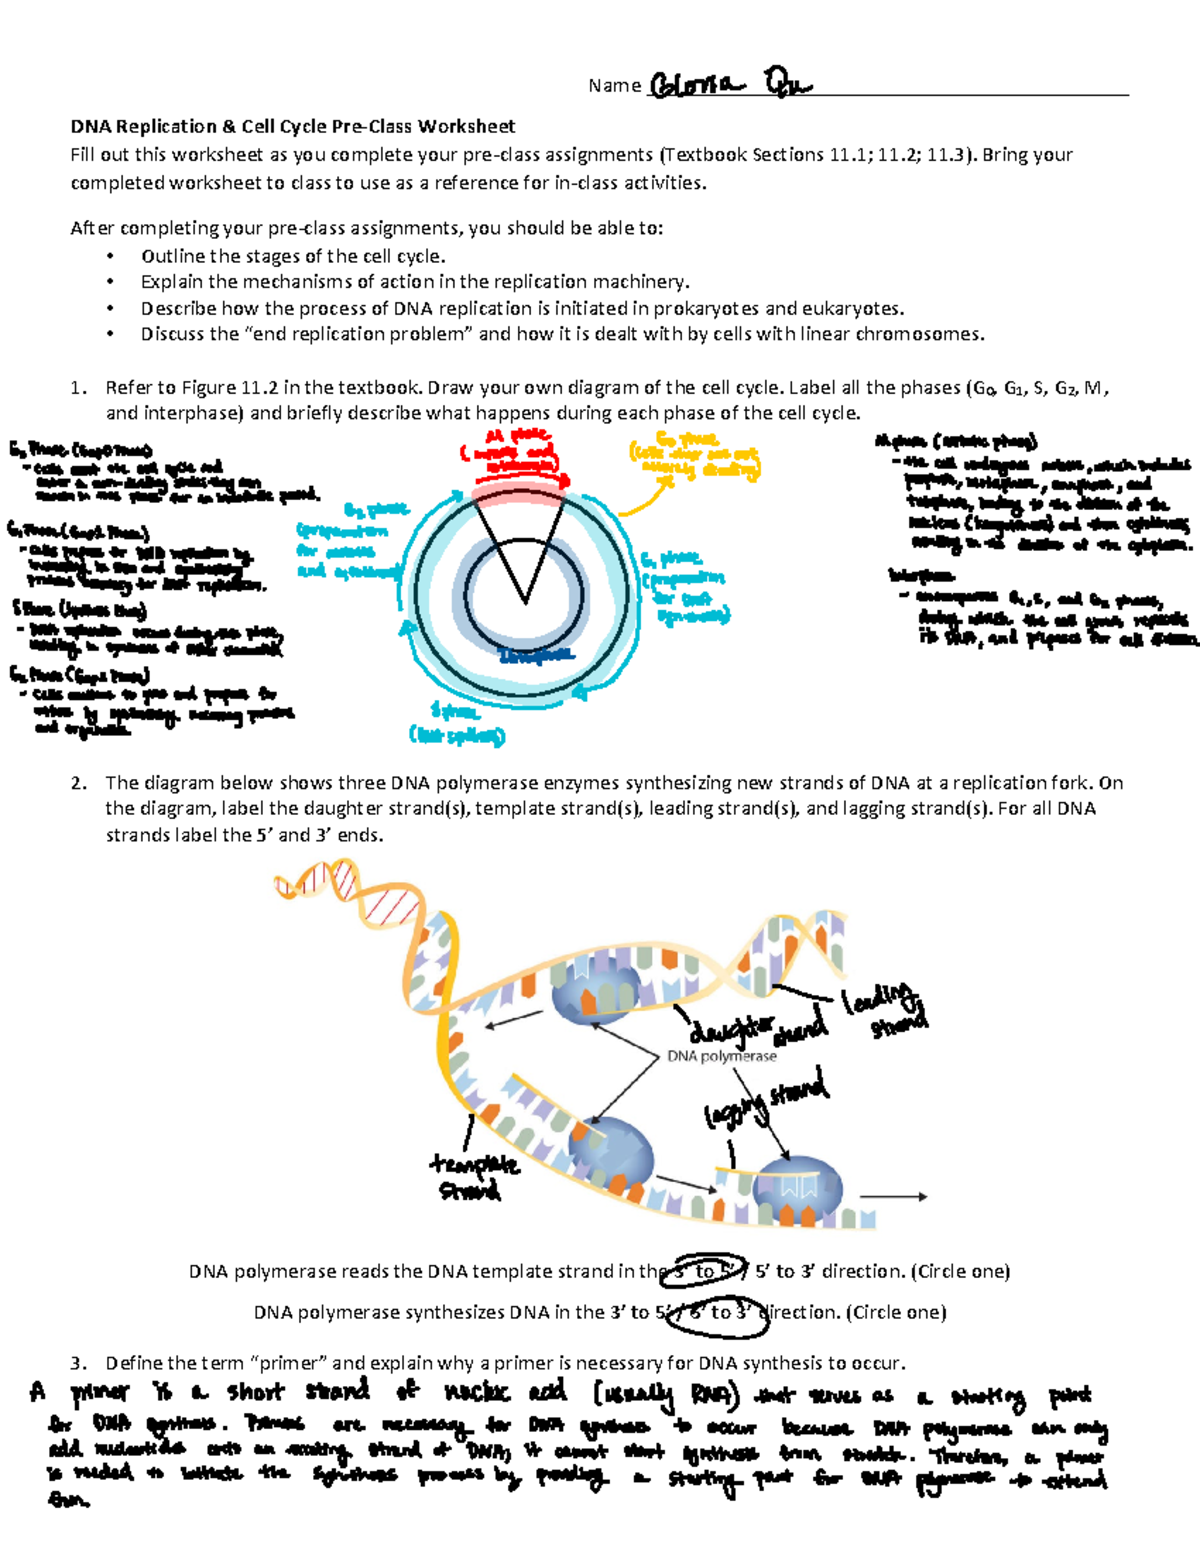 Name Gloria Qu
DNA Replication & Cell Cycle Pre-Class Worksheet
Fill out this worksheet as you complete your pre-class assignments (Textbook Sections 11.1; 11.2; 11.3). Bring your
completed worksheet to class to use as a reference for in-class activities.
After completing your pre-class assignments, you should be able to:
• Outline the stages of the cell cycle.
• Explain the mechanisms of action in the replication machinery.
• Describe how the process of DNA replication is initiated in prokaryotes and eukaryotes.
• Discuss the “end replication problem” and how it is dealt with by cells with linear chromosomes.
1. Refer to Figure 11.2 in the textbook. Draw your own diagram of the cell cycle. Label all the phases (G₀, G₁, S, G₂, M,
and interphase) and briefly describe what happens during each phase of the cell cycle.
G₀ Phase (Gap 0 Phase)
- Cells exit the cell cycle and
enter a non-dividing state. They can
remain in this phase for an indefinite period.
G₁ Phase (Gap 1 Phase)
- Cells prepare for DNA replication by
increasing in size and synthesizing
proteins necessary for DNA replication.
S Phase (Synthesis Phase)
- DNA replication occurs during this phase,
resulting in synthesis of
G₂ Phase (Gap 2 Phase)
- Cells continue to grow and prepare for
mitosis by synthesizing necessary proteins
and organelles.
M phase
(mitosis and
cytokinesis)
G₀ phase
(cells that are not
actively dividing)
G₂ phase
(preparation
for mitosis
and cytokinesis)
G₁ phase
(preparation
for DNA
synthesis)
Interphase
S phase
(DNA synthesis)
M phase (mitotic phase)
- the cell undergoes mitosis, which includes
prophase, metaphase, anaphase, and
telophase, leading to the division of the
nucleus (karyokinesis) and then cytokinesis,
resulting in the division of the cytoplasm.
Interphase
- encompasses G₁, S, and G₂ phases,
during which the cell grows, replicates
its DNA, and prepares for cell division.
2. The diagram below shows three DNA polymerase enzymes synthesizing new strands of DNA at a replication fork. On
the diagram, label the daughter strand(s), template strand(s), leading strand(s), and lagging strand(s). For all DNA
strands label the 5’ and 3’ ends.
leading
strand
daughter
strand
DNA polymerase
lagging strand
template
strand
DNA polymerase reads the DNA template strand in the 3’ to 5’ / 5’ to 3’ direction. (Circle one)
DNA polymerase synthesizes DNA in the 3’ to 5’ / 5’ to 3’ direction. (Circle one)
3. Define the term “primer” and explain why a primer is necessary for DNA synthesis to occur.
A primer is a short strand of nucleic acid (usually RNA) that serves as a starting point
for DNA synthesis. Primers are necessary for DNA synthesis to occur because DNA polymerase can only
add nucleotides onto an existing strand of DNA, it cannot start synthesis from scratch. Therefore, a primer
is needed to initiate the synthesis process by providing a starting point for DNA polymerase to extend
from.